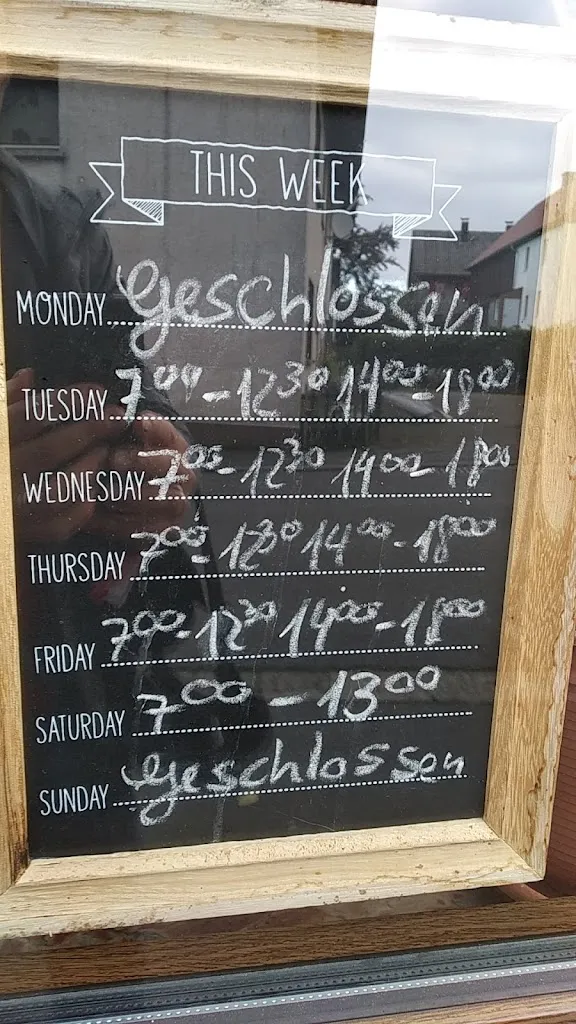 THIS WEEK
MONDAY geschlossen
TUESDAY 7⁰⁰-12³⁰ 14⁰⁰-18⁰⁰
WEDNESDAY 7⁰⁰-12³⁰ 14⁰⁰-18⁰⁰
THURSDAY 7⁰⁰-12³⁰ 14⁰⁰-18⁰⁰
FRIDAY 7⁰⁰-12³⁰ 14⁰⁰-18⁰⁰
SATURDAY 7⁰⁰-13⁰⁰
SUNDAY geschlossen